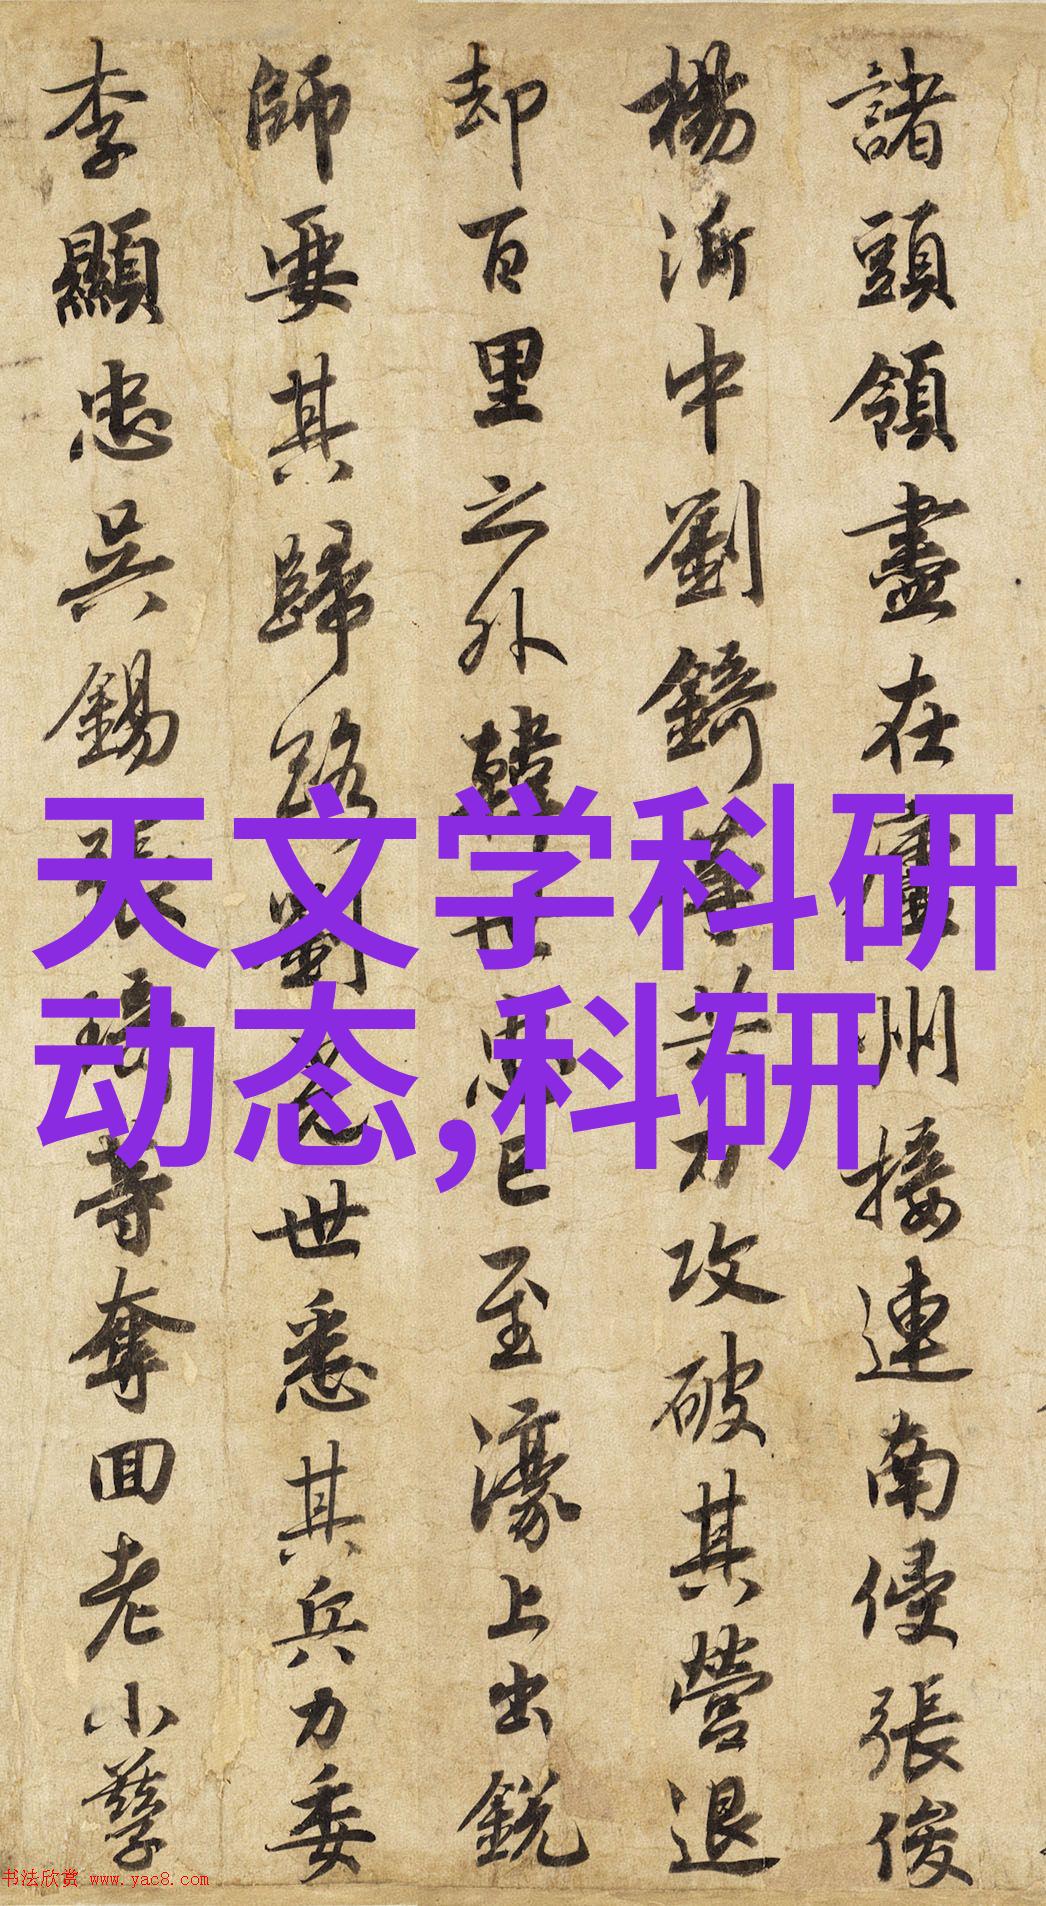 諸頭領盡在廬州接連南侵張俊
楊沂中劉錡等共力攻破其營退
却百里之外韓世忠已至濠上出銳
師要其歸路劉光世悉其兵力委
李顯忠吳錫張琦等奪回老小孳
天文学科研
动态,科研
书法欣赏 www.yac8.com